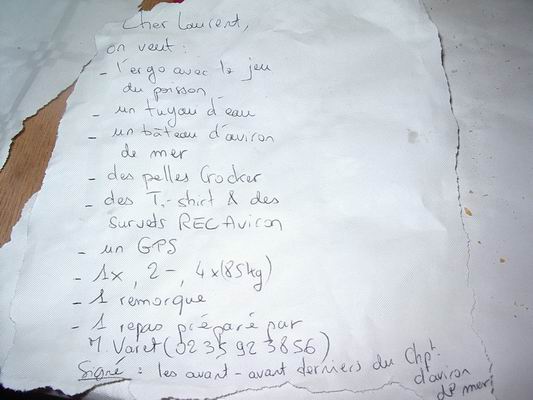 Cher Laurent,
on veut :
- l'ergo avec le jeu
du poisson
- un tuyau d'eau
- un bâteau d'aviron
de mer
- des pelles Crocker
- des T.-shirt & des
survets REC Aviron
- un GPS
- 1x, 2-, 4x(85kg)
- 1 remorque
- 1 repas préparé par
M. Varet (02 35 92 38 56)
Signé : les avant-avant derniers du Chpt
d'aviron
de mer!